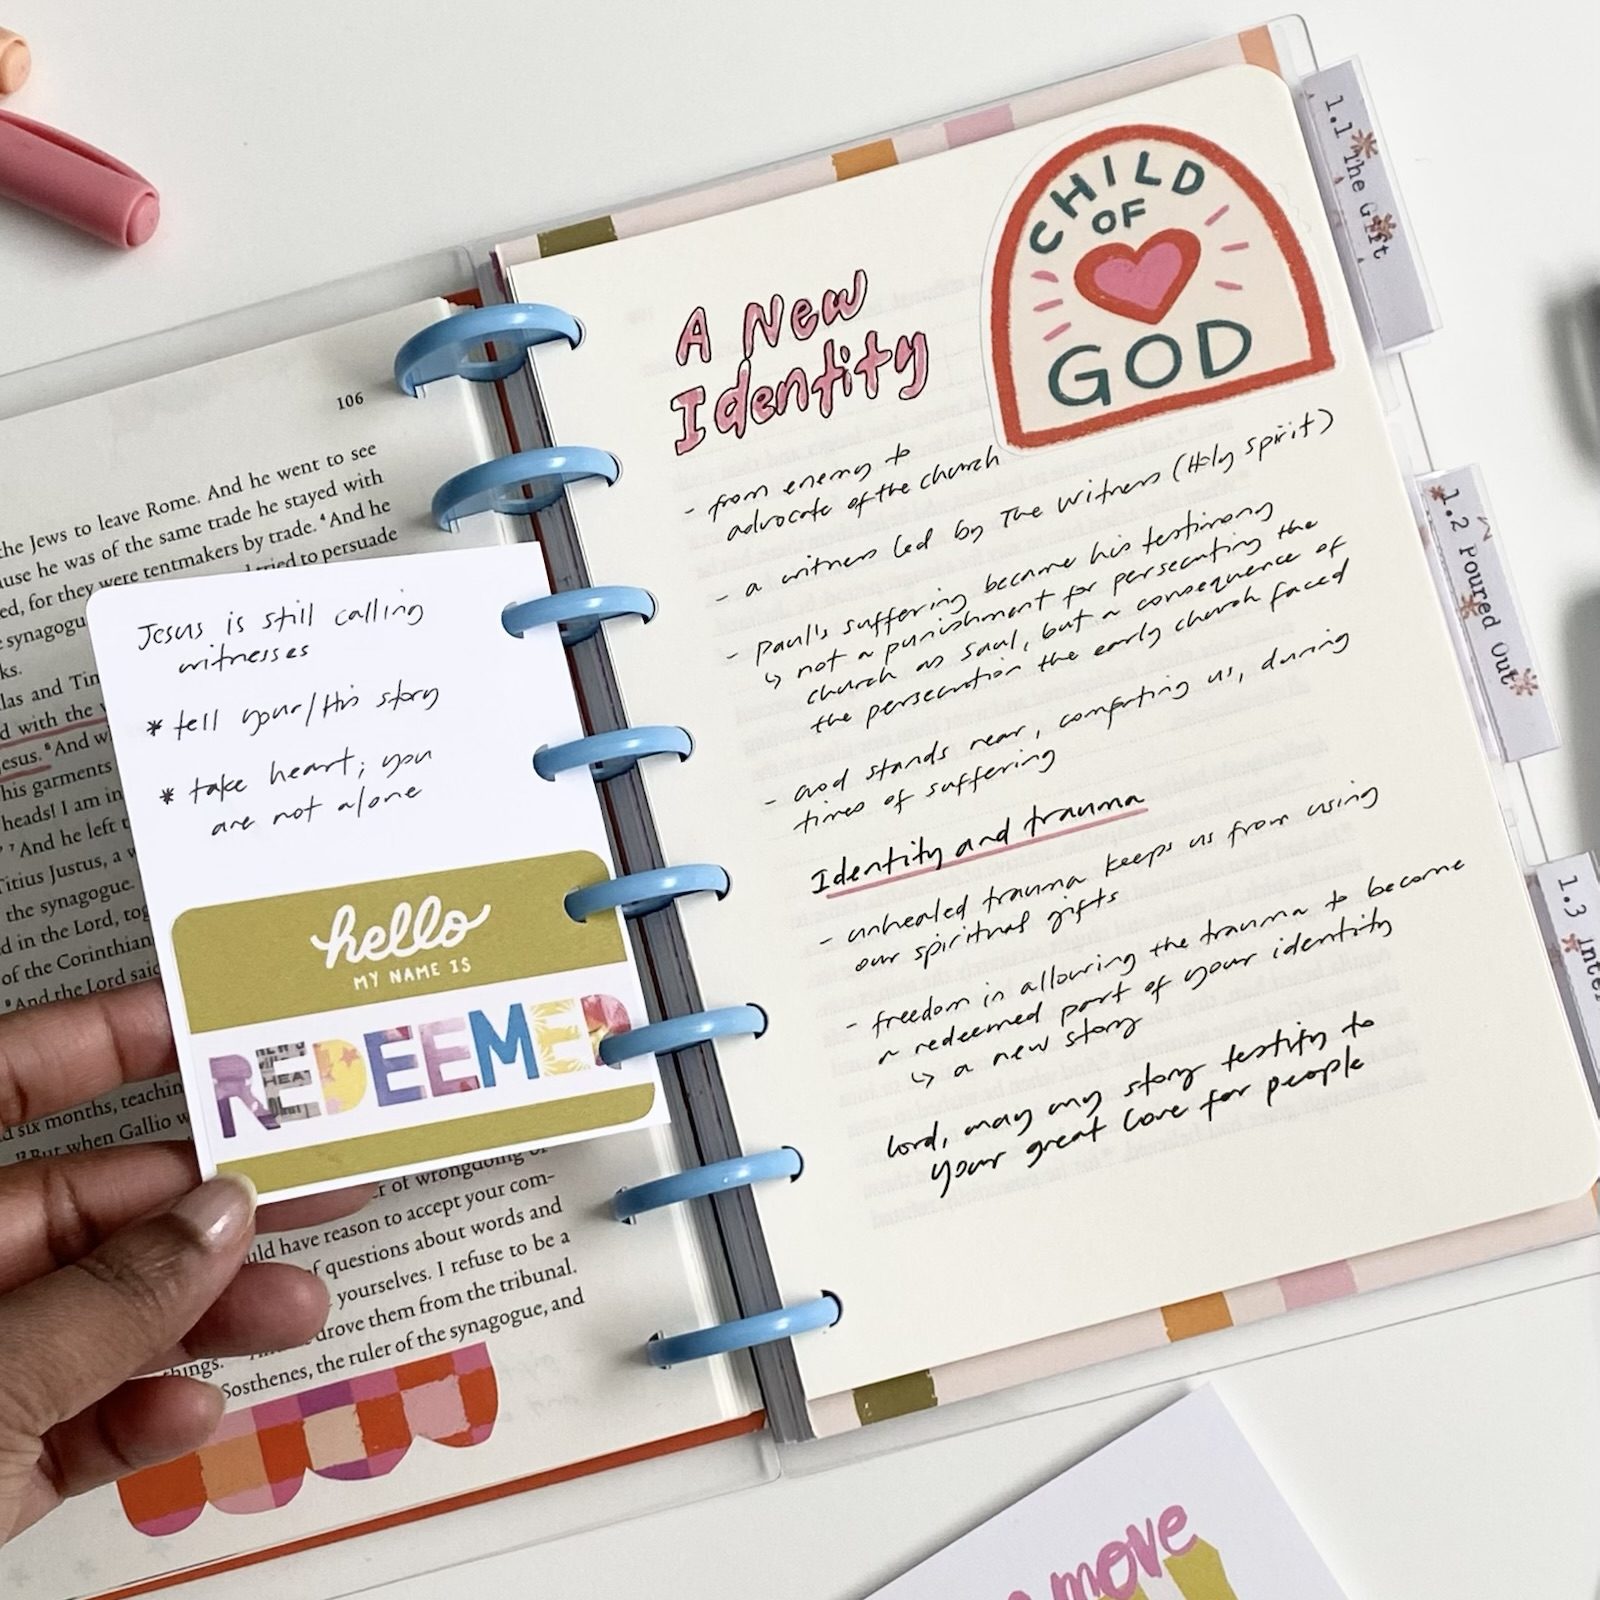 106
the Jews to leave Rome. And he went to see
ause he was of the same trade he stayed with
ed, for they were tentmakers by trade. ⁴ And he
synagogu tried to persuade
ks.
las and Tim
d with the
esus. ⁶ And w
his garments
heads! I am in
⁷ And he left t
Titius Justus, a w
the synagogue.
d in the Lord, tog
of the Corinthian
⁹ And the Lord said
d six months, teachin
¹² But when Gallio w
er of wrongdoing or
uld have reason to accept your com-
of questions about words and
yourselves. I refuse to be a
drove them from the tribunal.
things.
Sosthenes, the ruler of the synagogue, and
Jesus is still calling
witnesses
* tell your/His story
* take heart; you
are not alone
hello
MY NAME IS
REDEEMED
CHILD
OF
GOD
A New
Identity
- from enemy to
advocate of the church
- a witness led by The Witness (Holy Spirit)
- Paul's suffering became his testimony
↳ not a punishment for persecuting the
church as Saul, but a consequence of
the persecution the early church faced
- God stands near, comforting us, during
times of suffering
Identity and trauma
- unhealed trauma keeps us from using
our spiritual gifts
- freedom in allowing the trauma to become
a redeemed part of your identity
↳ a new story
Lord, may my story testify to
your great love for people
1.1 The Gift
1.2 Poured Out
1.3 Inter
move